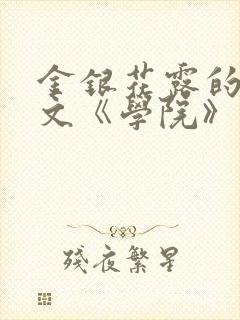 金銀花露的
文《學院》
殘夜繁星